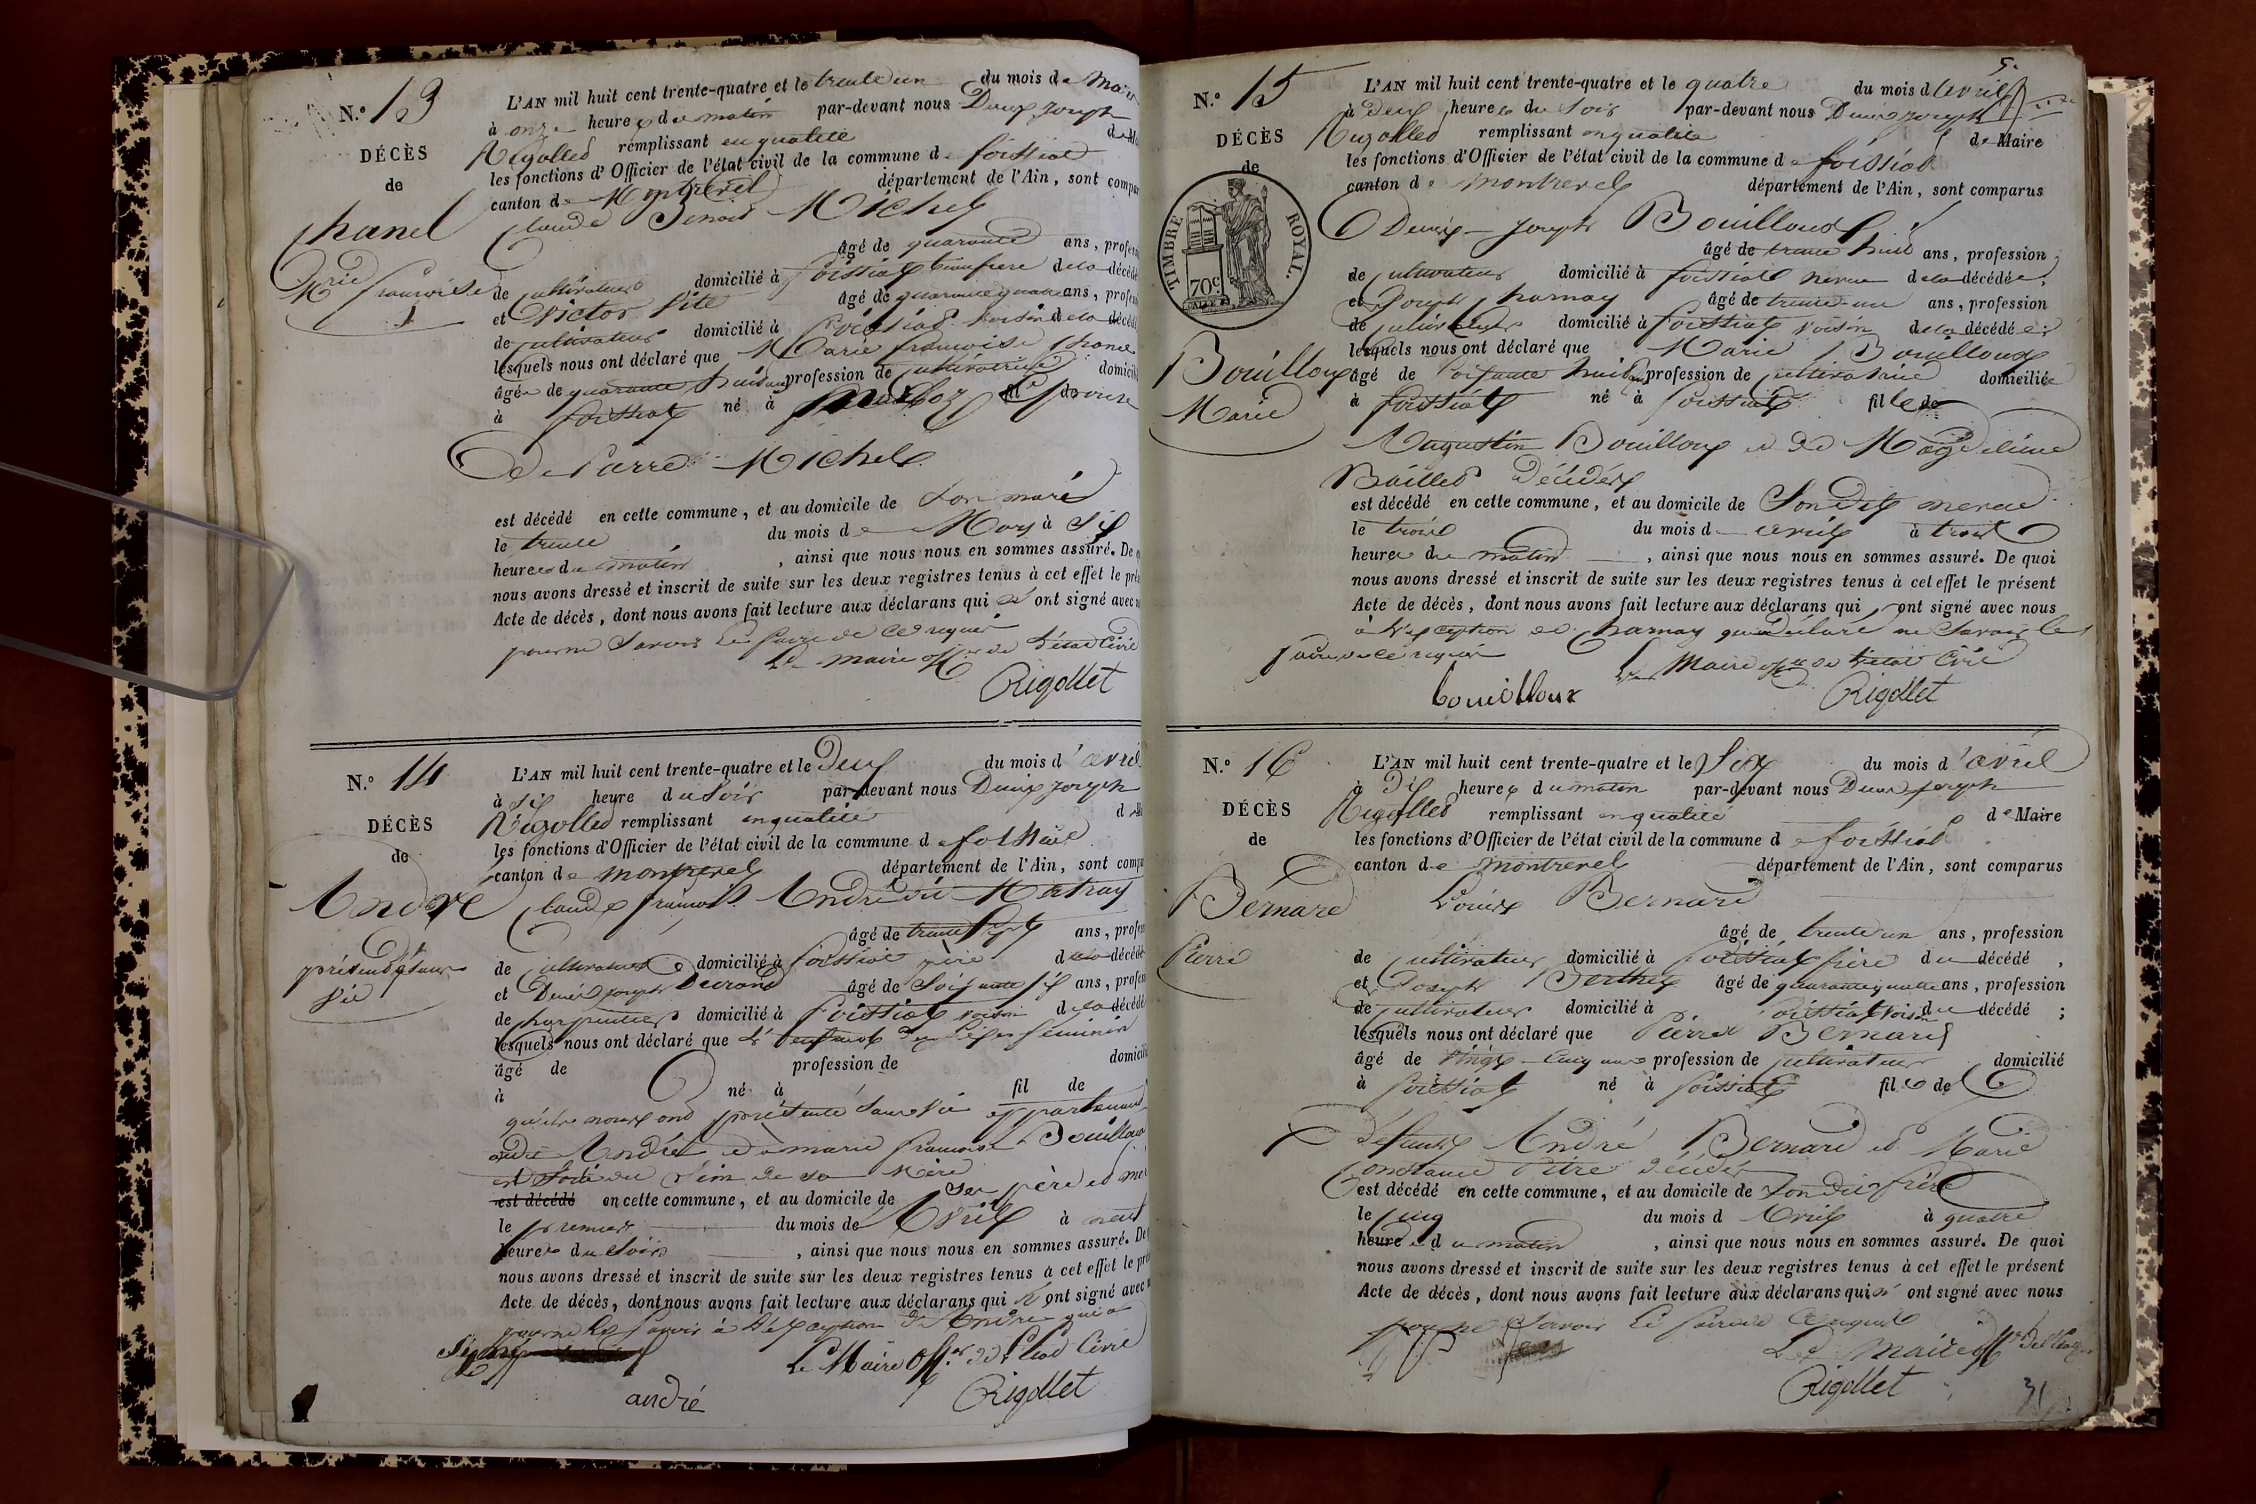 N.° 13
DÉCÈS
de
Chanel
Marie françoise
L'AN mil huit cent trente-quatre et le trente un du mois de Mars
à onze heures du matin par-devant nous Denis Joseph
Rigollet remplissant en qualité de
les fonctions d'Officier de l'état civil de la commune de foissiat
canton de Montrevel département de l'Ain, sont
Claude Benoit Michel
âgé de quarante ans,
de cultivateur domicilié à foissiat beaufrere de la
et Victor Pite âgé de quarante quatre ans,
de cultivateur domicilié à foissiat voisin de la
lesquels nous ont déclaré que Marie françoise Chanel
âgée de quarante huit ans profession de cultivatrice
à foissiat né à Marboz épouse
de Pierre Michel
est décédé en cette commune, et au domicile de son mari
le trente du mois de Mars à six
heures du matin, ainsi que nous nous en sommes assuré. De
nous avons dressé et inscrit de suite sur les deux registres tenus à cet effet le
Acte de décès, dont nous avons fait lecture aux déclarans qui n' ont signé avec
pour ne savoir le faire de ce requis
Le maire off.er de l'état Civil
Rigollet
N.° 14
DÉCÈS
de
André
présenté sans
vie
L'AN mil huit cent trente-quatre et le Deux du mois d'avril
à six heure du soir par-devant nous Denis Joseph
Rigollet remplissant en qualité
les fonctions d'Officier de l'état civil de la commune de foissiat
canton de montrevel département de l'Ain, sont
Claude françois André dit Mathay
âgé de trente sept ans,
de cultivateur domicilié à foissiat père de la
et Denis Joseph Durand âgé de soixante six ans,
de charpentier domicilié à foissiat voisin de la
lesquels nous ont déclaré que l'enfant du sexe féminin
âgé de profession de
à né à fil de
qu'ils nous ont présenté sans vie appartenant
André et a marie françoise Bouilloux
est sortie du sein de sa Mère
est décédé en cette commune, et au domicile de ses père et
le premier du mois de Avril à neuf
heures du soir, ainsi que nous nous en sommes assuré.
nous avons dressé et inscrit de suite sur les deux registres tenus à cet effet le
Acte de décès, dont nous avons fait lecture aux déclarans qui n' ont signé avec
pour ne le savoir à l'exception de André qui a
signé
Le Maire Off.er de l'Etat Civil
andré Rigollet
5.
N.° 15
DÉCÈS
de
TIMBRE ROYAL.
70c
Bouilloux
Marie
L'AN mil huit cent trente-quatre et le quatre du mois d'avril
à deux heures du soir par-devant nous Denis Joseph
Rigollet remplissant en qualité de Maire
les fonctions d'Officier de l'état civil de la commune de foissiat
canton de montrevel département de l'Ain, sont comparus
Denis Joseph Bouilloux
âgé de trente huit ans, profession
de cultivateur domicilié à foissiat neveu de la décédée,
et Joseph Charnay âgé de trente un ans, profession
de cultivateur domicilié à foissiat voisin de la décédée;
lesquels nous ont déclaré que Marie Bouilloux
âgé de soixante huit ans profession de cultivatrice domiciliée
à foissiat né à foissiat fille de
Augustin Bouilloux et de Magdelaine
décédés
est décédé en cette commune, et au domicile de son dit neveu
le trois du mois d avril à trois
heures du matin, ainsi que nous nous en sommes assuré. De quoi
nous avons dressé et inscrit de suite sur les deux registres tenus à cet effet le présent
Acte de décès, dont nous avons fait lecture aux déclarans qui ont signé avec nous
à l'exception de Charnay qui a déclaré ne savoir le
faire de ce requis
Le Maire off.er de l'état Civil
bouilloux Rigollet
N.° 16
DÉCÈS
de
Bernard
Pierre
L'AN mil huit cent trente-quatre et le Six du mois d'avril
à dix heures du matin par-devant nous Denis Joseph
Rigollet remplissant en qualité de Maire
les fonctions d'Officier de l'état civil de la commune d foissiat
canton de montrevel département de l'Ain, sont comparus
Louis Bernard
âgé de trente un ans, profession
de cultivateur domicilié à foissiat frère du décédé,
et Joseph Berthet âgé de quarante quatre ans, profession
de cultivateur domicilié à foissiat voisin du décédé;
lesquels nous ont déclaré que Pierre Bernard
âgé de vingt cinq ans profession de cultivateur domicilié
à foissiat né à foissiat fils de
Défunts André Bernard et Marie
Constance décédés
est décédé en cette commune, et au domicile de son dit frère
le cinq du mois d Avril à quatre
heures du matin, ainsi que nous nous en sommes assuré. De quoi
nous avons dressé et inscrit de suite sur les deux registres tenus à cet effet le présent
Acte de décès, dont nous avons fait lecture aux déclarans qui n' ont signé avec nous
pour ne savoir le faire de ce requis
Le maire off.er de l'état
Rigollet